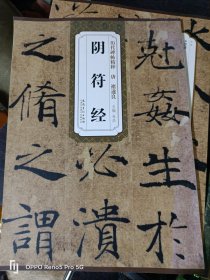 历代碑帖精粹 唐 褚遂良
阴符经
尅姦生於
必潰
之脩之謂
OPPO Reno5 Pro 5G